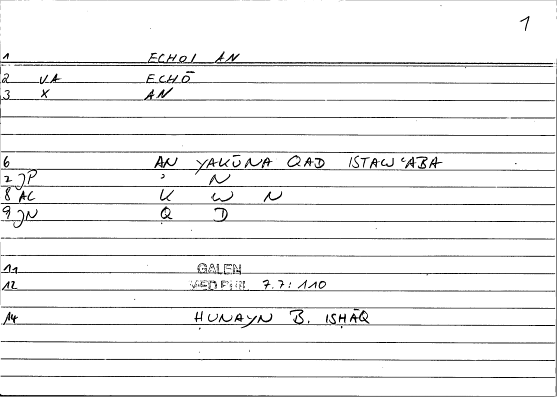 1
1 ECHOI AN
2 VA ECHŌ
3 X AN
6 AN YAKŪNA QAD ISTAWʿABA
2 JP ʾ N
8 AC K W N
9 JN Q D
11 GALEN
12 MED PHIL 7.7: 110
14 ḤUNAYN B. ISḤĀQ